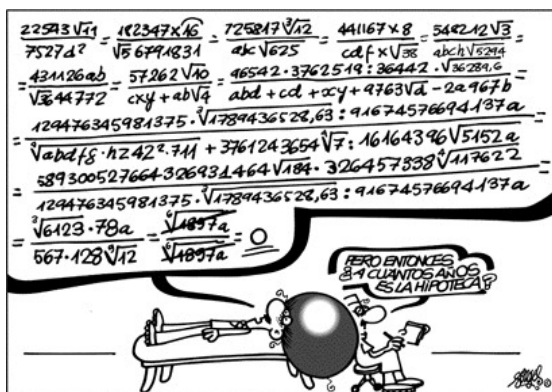 22593√11/7527d² = 182347×16/√5 6791831 = 725817∛12/abc√625 = 441167×8/cdf×√38 = 548212√3/abch√5294 =
= 431126ab/√3644772 = 57262√10/cxy+ab√4 = 96542·3762519:36442·√36289,6/abd+cd+xy+9763√d-2a967b =
129476345981375·∛1789436528,63:91674576694137a
∛abdfg·hz42²·711 + 3761243654∜7:16164396√5152a =
= 589300527664326931464√184·326457338∜117622
129476345981375·∛1789436528,63:91674576694137a =
= ∛6123·78a/567·128∛12 = ∜1897a/∜1897a = 0
PERO ENTONCES
¿A CUANTOS AÑOS
ES LA HIPOTECA?